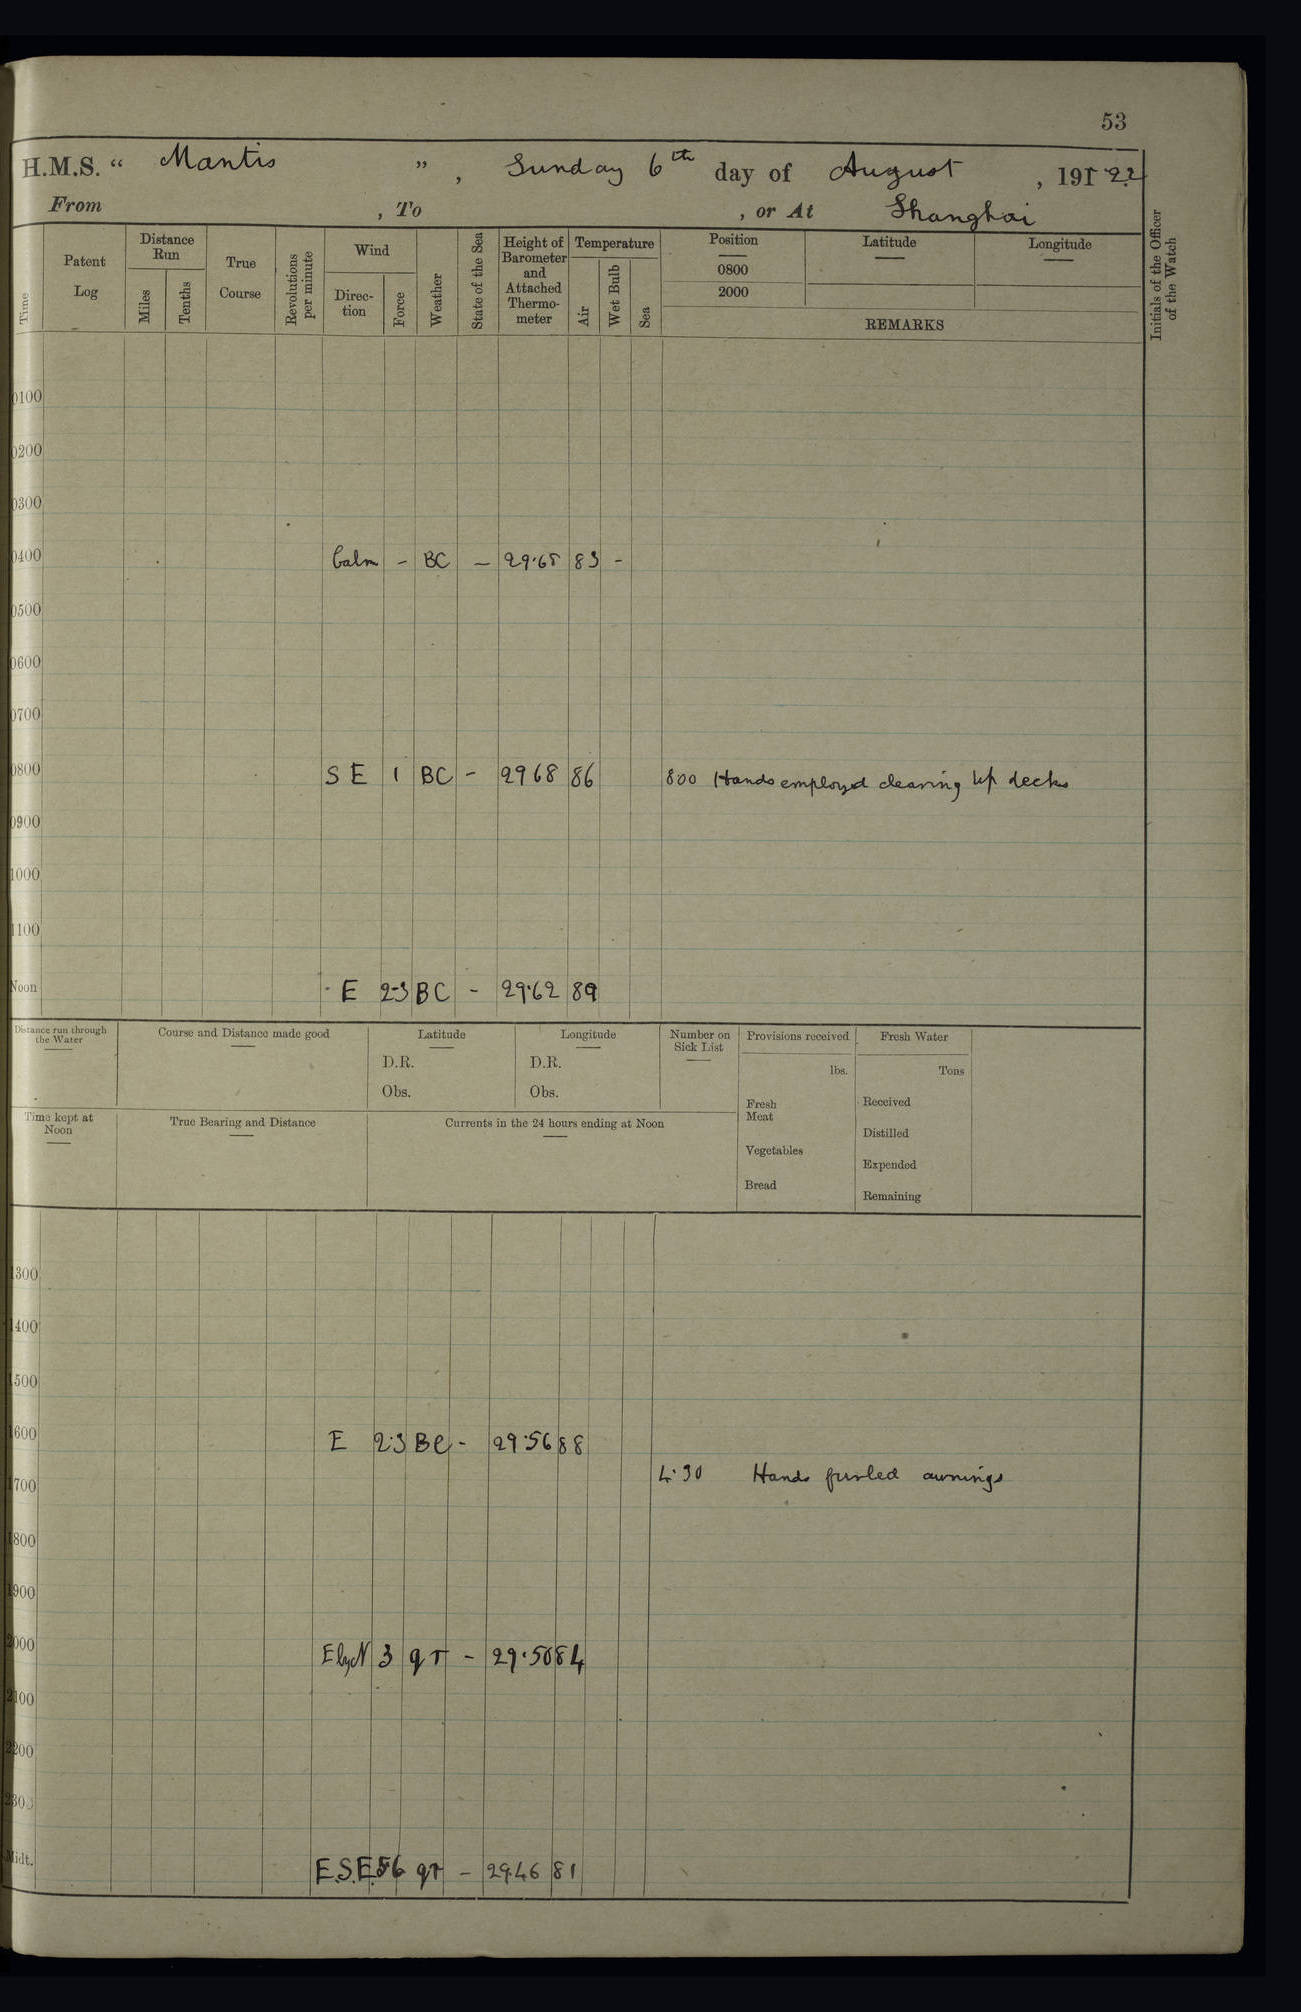 53
H.M.S. “ Mantis ”, Sunday 6th day of August, 191 22
From , To , or At Shanghai
Time
Patent Log
Distance Run
Miles
Tenths
True Course
Revolutions per minute
Wind
Direc-tion
Force
Weather
State of the Sea
Height of Barometer and Attached Thermo-meter
Temperature
Air
Wet Bulb
Sea
Position
0800
2000
Latitude
Longitude
REMARKS
Initials of the Officer of the Watch
0100
0200
0300
0400 Calm - BC - 29.65 83 -
0500
0600
0700
0800 S E 1 BC - 2968 86 800 Hands employed cleaning up decks
0900
1000
1100
Noon E 2-3 BC - 29.62 89
Distance run through the Water
Course and Distance made good
Latitude
D.R.
Obs.
Longitude
D.R.
Obs.
Number on Sick List
Provisions received
lbs.
Fresh Meat
Vegetables
Bread
Fresh Water
Tons
Received
Distilled
Expended
Remaining
Time kept at Noon
True Bearing and Distance
Currents in the 24 hours ending at Noon
1300
1400
1500
1600 E 2.3 BC - 29.56 88
4.30 Hands furled awnings
1700
1800
1900
2000 EbyN 3 qr - 29.50 84
2100
2200
2300
Midt. E.S.E. 5-6 qr - 29.46 81